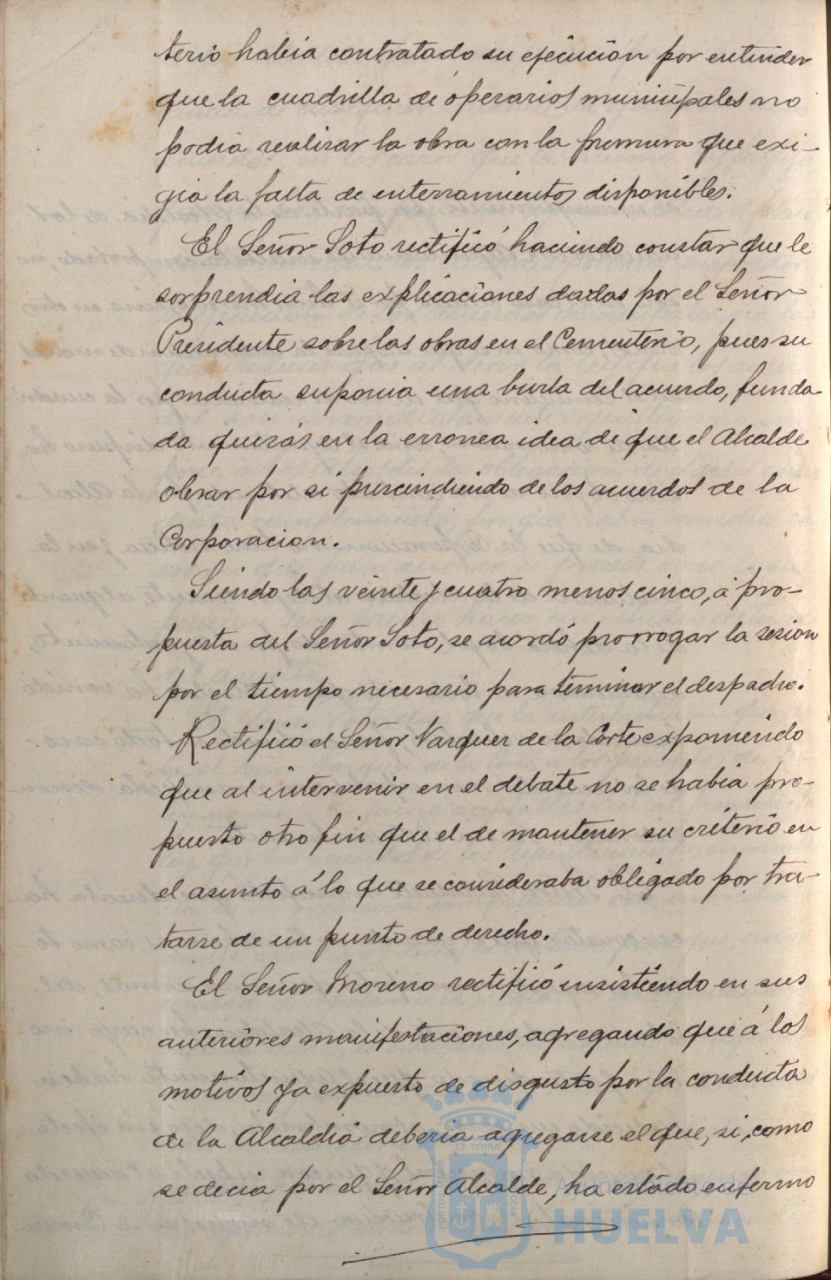 terio habia contratado su ejecucion por entender
que la cuadrilla de operarios municipales no
podia realizar la obra con la premura que exi-
gia la falta de enterramientos disponibles.
El Señor Soto rectificó haciendo constar que le
sorprendia las explicaciones dadas por el Señor
Presidente sobre las obras en el Cementerio, pues su
conducta suponia una burla del acuerdo, funda
da quizás en la erronea idea de que el Alcalde
obrar por si prescindiendo de los acuerdos de la
Corporacion.
Siendo las veinte y cuatro menos cinco, á pro-
puesta del Señor Soto, se acordó prorrogar la sesion
por el tiempo necesario para terminar el despacho.
Rectificó el Señor Vazquez de la Corte exponiendo
que al intervenir en el debate no se habia pro-
puesto otro fin que el de mantener su criterio en
el asunto á lo que se consideraba obligado por tra-
tarse de un punto de derecho.
El Señor Moreno rectificó insistiendo en sus
anteriores manifestaciones, agregando que á los
motivos ya expuesto de disgusto por la conducta
de la Alcaldia deberia agregarse el que, si, como
se decia por el Señor Alcalde, ha estado enfermo
HUELVA